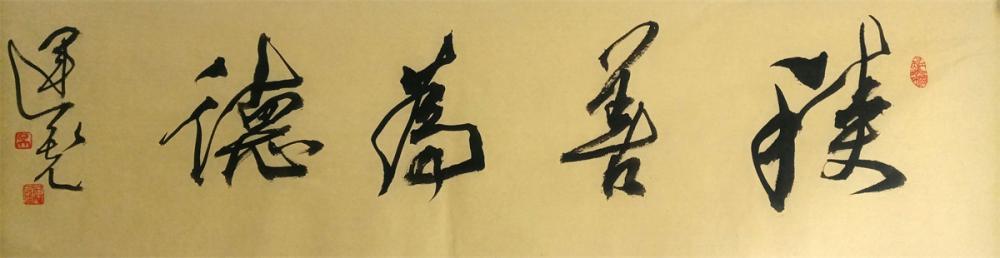 積善為德